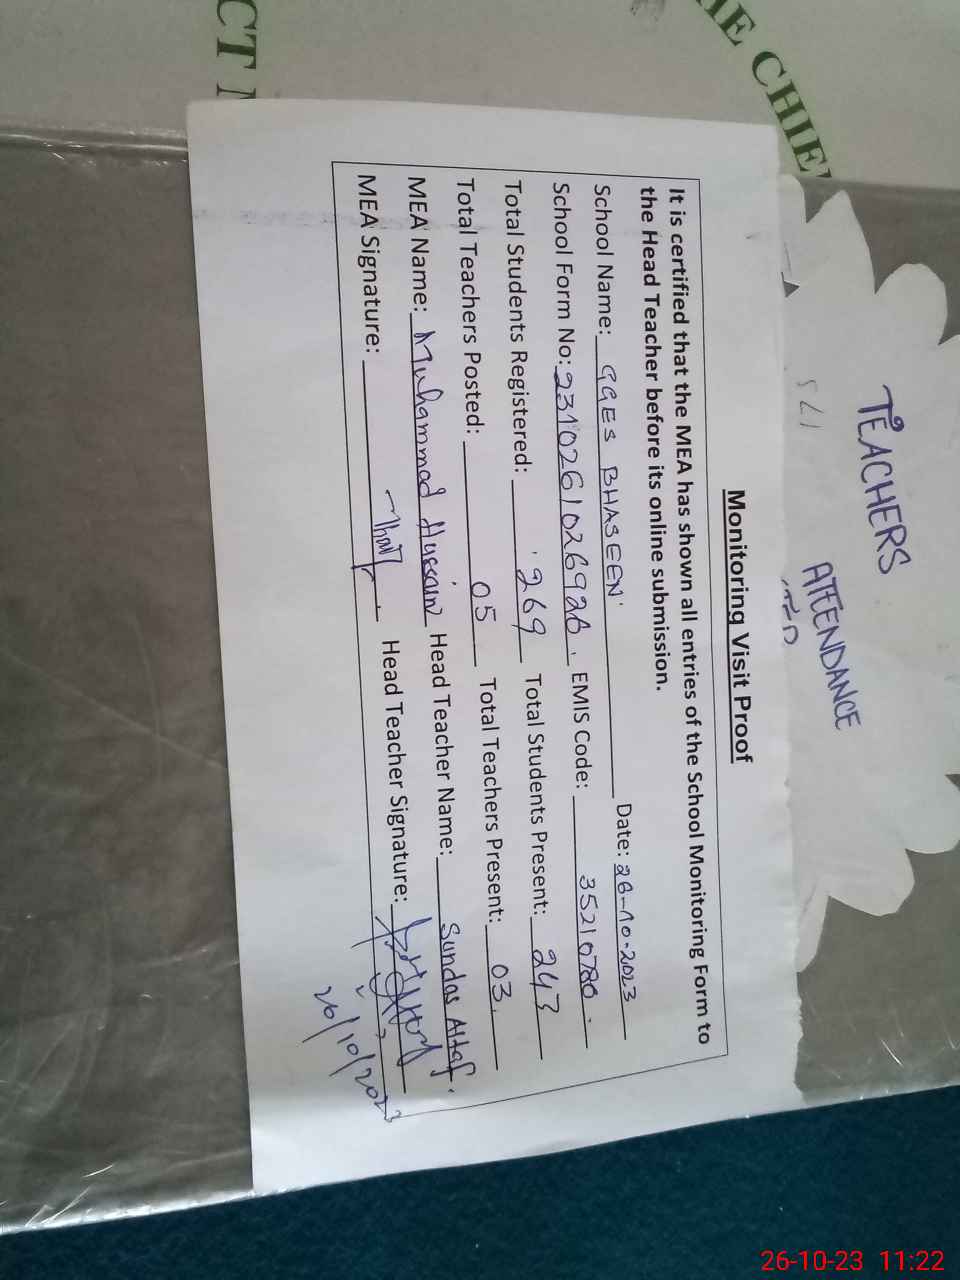 THE CHIEF
CT
TEACHERS
ATEENDANCE
Monitoring Visit Proof
It is certified that the MEA has shown all entries of the School Monitoring Form to
the Head Teacher before its online submission.
School Name: GGES BHASEEN Date: 26-10-2023
School Form No: 2310261026928 EMIS Code: 35210780
Total Students Registered: 269 Total Students Present: 243
Total Teachers Posted: 05 Total Teachers Present: 03
MEA Name: Muhammad Hussain Head Teacher Name: Sundas Altaf
MEA Signature: Head Teacher Signature:
26/10/2023
26-10-23 11:22